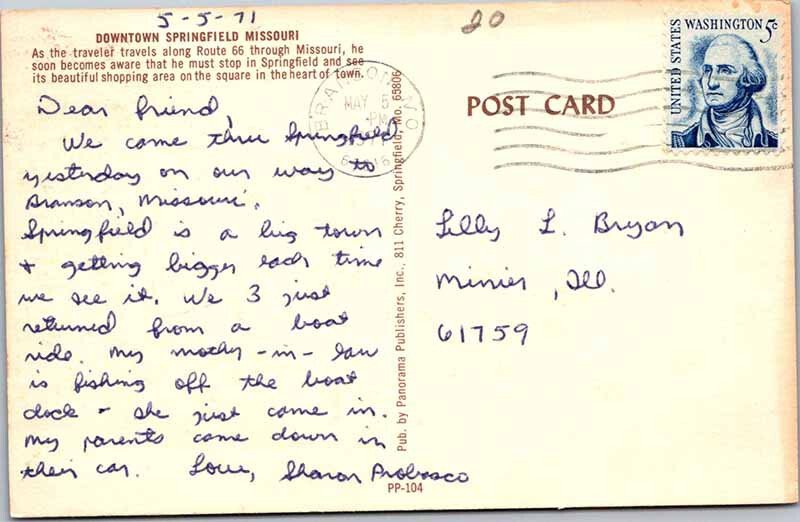 5-5-71
20
DOWNTOWN SPRINGFIELD MISSOURI
As the traveler travels along Route 66 through Missouri, he
soon becomes aware that he must stop in Springfield and see
its beautiful shopping area on the square in the heart of town.
Dear friend,
We came thru Springfield
yesterday on our way to
Branson, Missouri.
Springfield is a big town
+ getting bigger each time
we see it. We 3 just
returned from a boat
ride. My mother-in-law
is fishing off the boat
dock - she just came in.
My parents came down in
their car. Love, Sharon Probasco
BRANSON, MO
MAY 5
PM
Pub. by Panorama Publishers, Inc., 811 Cherry, Springfield, Mo. 65806
PP-104
POST CARD
UNITED STATES
WASHINGTON 5¢
Lilly L. Bryan
Minier, Ill.
61759